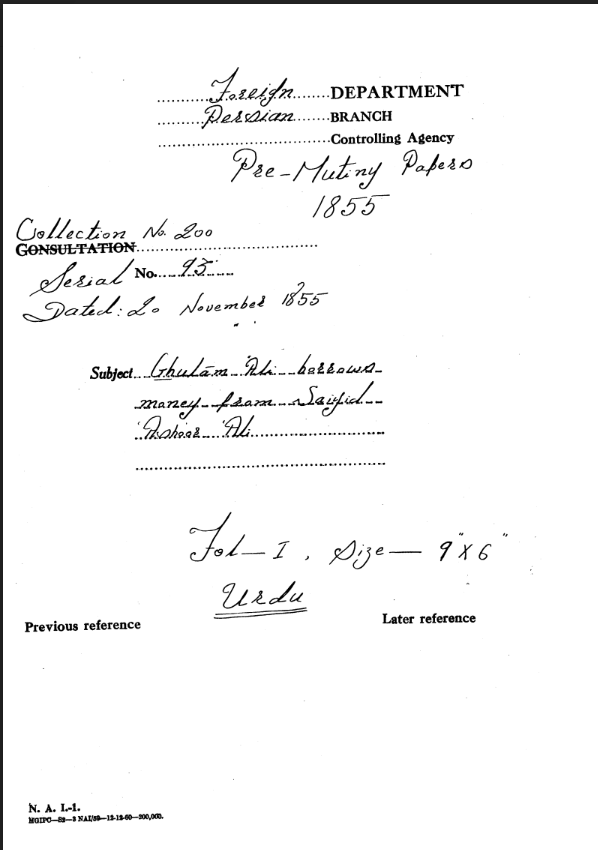 Foreign DEPARTMENT
Persian BRANCH
Controlling Agency
Pre-Mutiny Papers
1855
Collection No. 200
CONSULTATION
Serial No. 93
Dated: 20 November 1855
?
Subject Ghulam Ali borrows
money from Saiyid
Ashoor Ali
Fol-I, Size— 9" X 6"
Urdu
Previous reference
Later reference
N. A. I.-1.
MGIPC—S2—3 NAI/59—12-12-60—200,000.